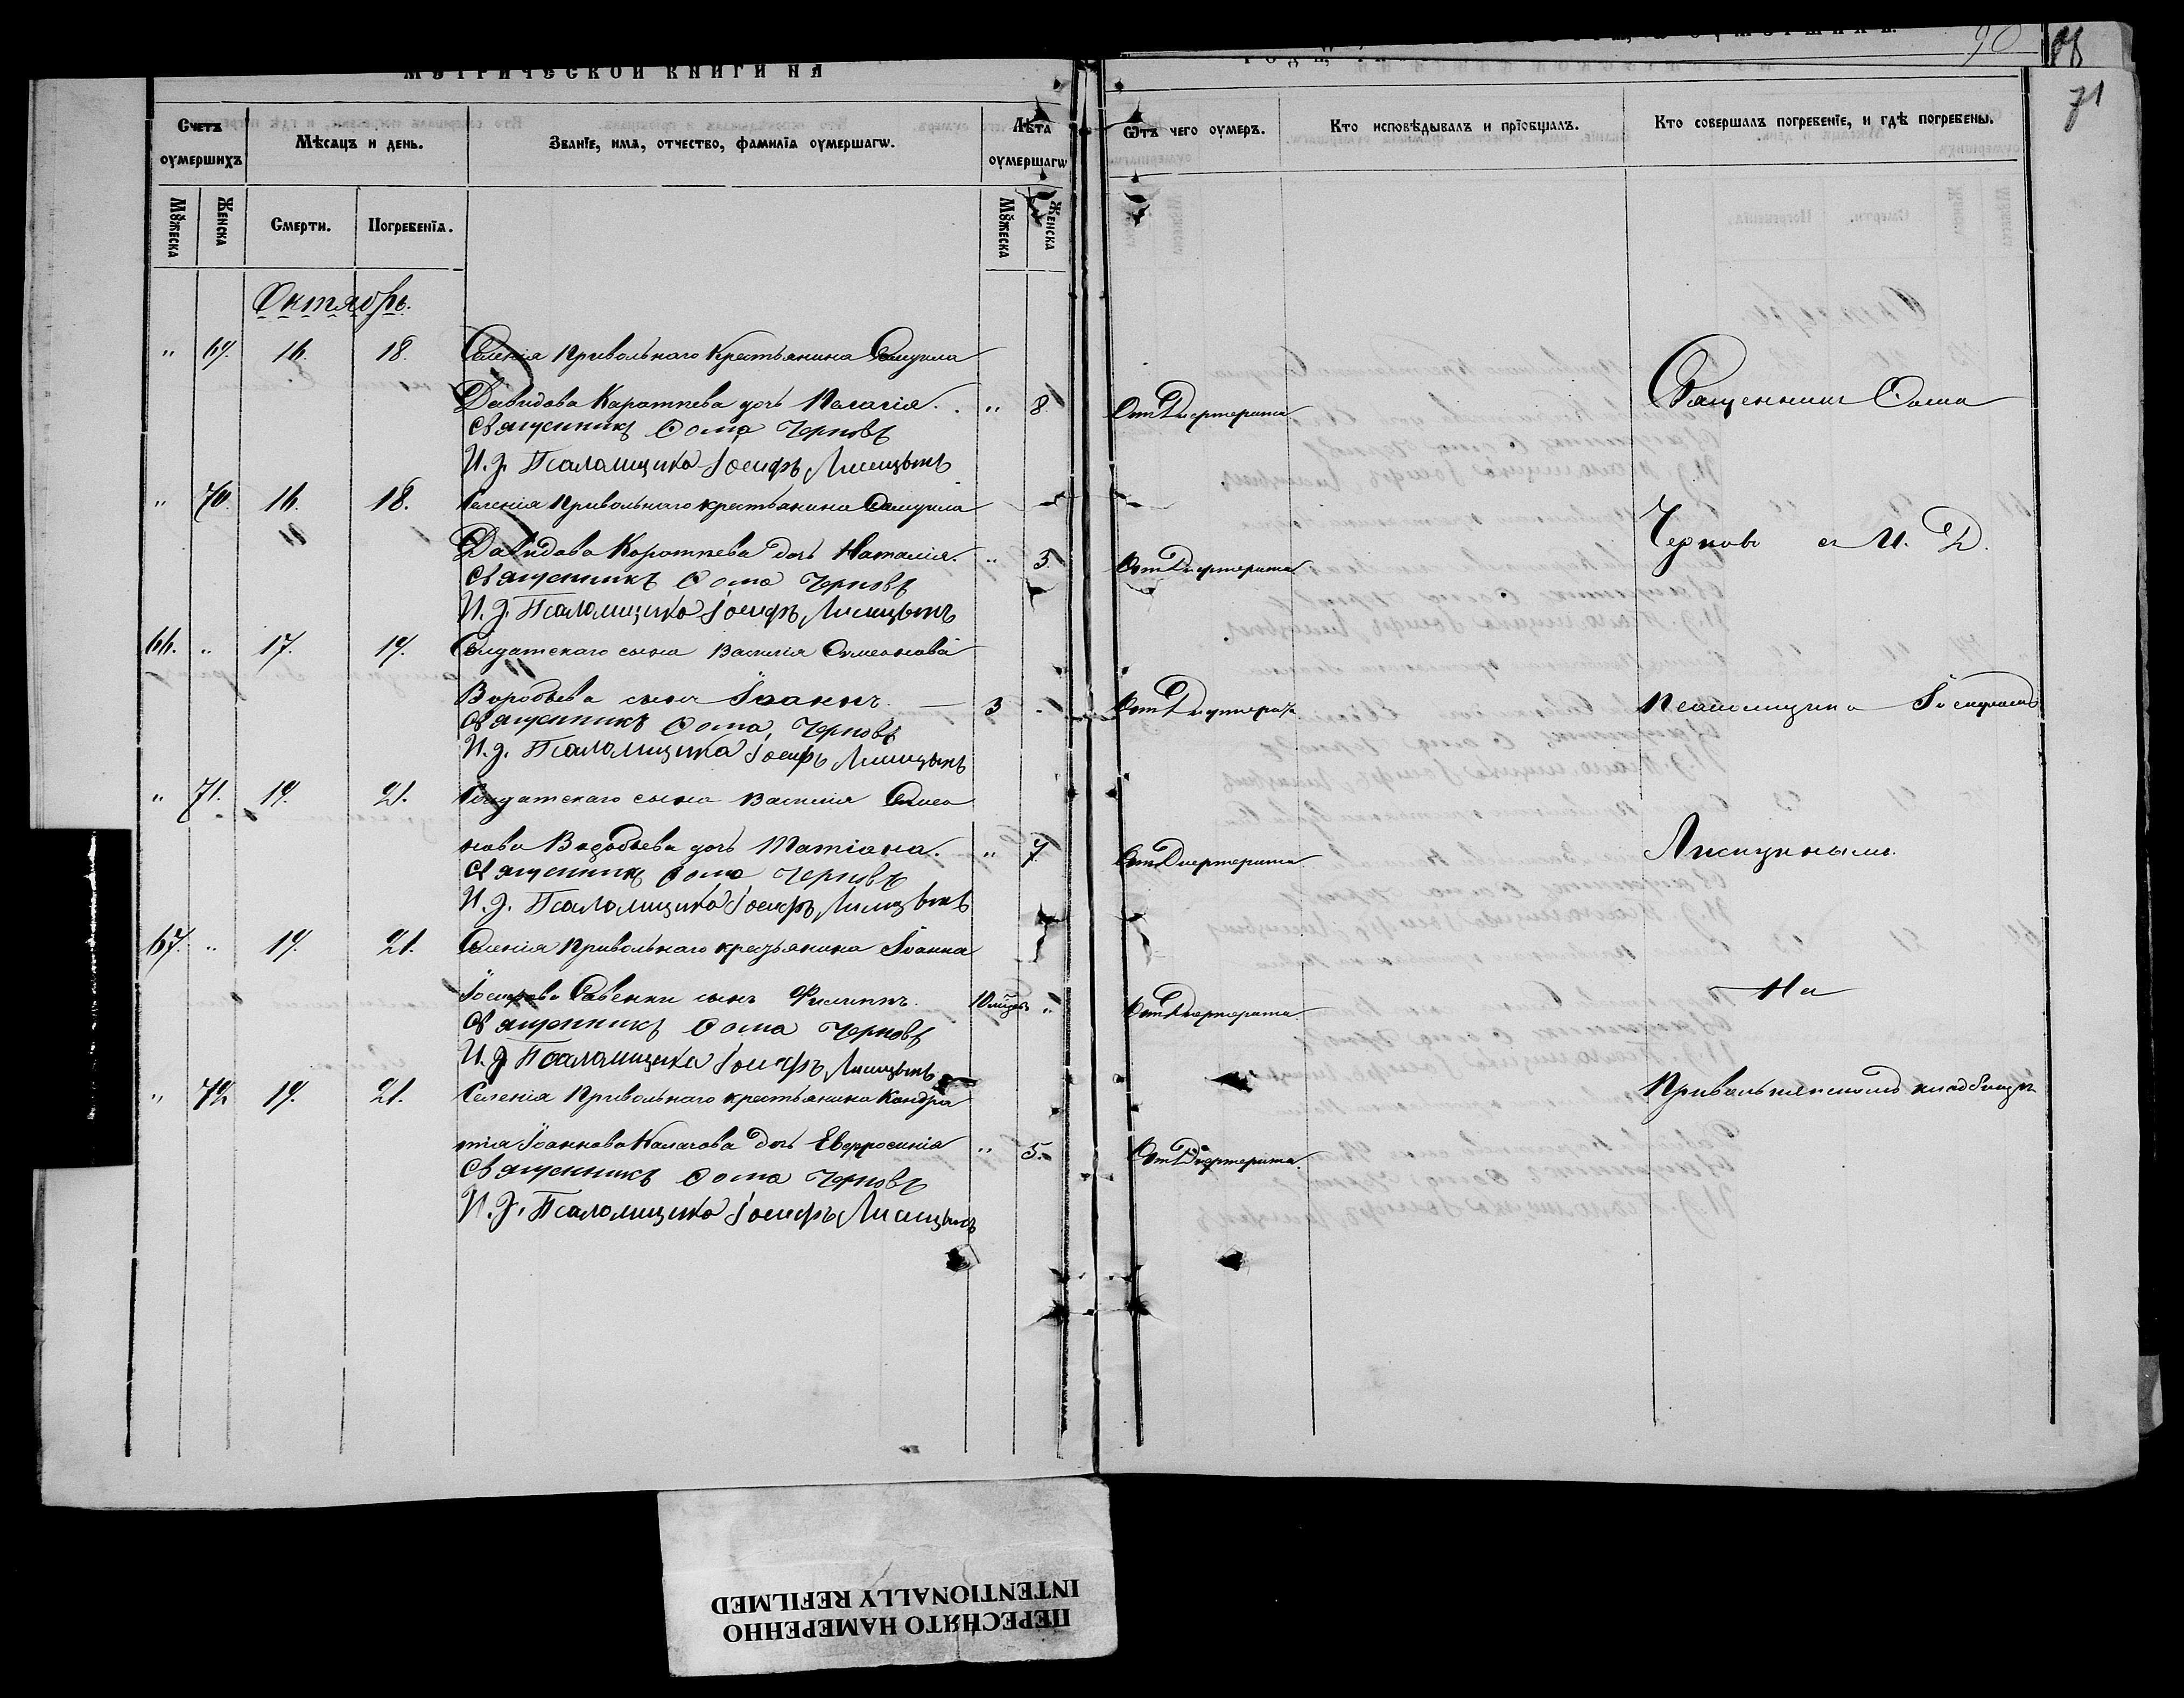 МЕТРИЧЕСКОЙ КНИГИ НА
Счетъ оумершихъ
Мѣсяцъ и день.
Званїе, имя, отчество, фамилїя оумершагѡ.
Лѣта оумершагѡ
Мꙋжеска
Женска
Смерти.
Погребенїя.
Мꙋжеска
Женска
Октябрь.
" 69. 16. 18. Селенія Привольнаго Крестьянина Самуила
Давидова Каратпева дочь Пелагія. " 8
Священникъ Ѳома Черновъ
И. д. Псаломщика Іосифъ Лисицынъ
" 70. 16. 18. Селенія Привольнаго крестьянина Самуила
Давидова Коротпева дочь Наталія. " 3
Священникъ Ѳома Черновъ
И. д. Псаломщика Іосифъ Лисицынъ
66. " 17. 19. Солдатскаго сына Василія Симеонова
Воробьева сынъ Іоаннъ. — 3 "
Священникъ Ѳома Черновъ
И. д. Псаломщика Іосифъ Лисицынъ
" 71. 19. 21. Солдатскаго сына Василія Симео
нова Воробьева дочь Татіана. " 7
Священникъ Ѳома Черновъ
И. д. Псаломщика Іосифъ Лисицынъ
67. " 19. 21. Селенія Привольнаго крестьянина Іоанна
Іосифова Савенки сынъ Филиппъ. "
Священникъ Ѳома Черновъ
И. д. Псаломщика Іосифъ Лисицынъ
" 72 19. 21. Селенія Привольнаго крестьянина Кондра
тія Іоаннова Калачова дочь Евфросинія " 5.
Священникъ Ѳома Черновъ
И. д. Псаломщика Іосифъ Лисицынъ
90
71
Ѿтъ чего оумеръ.
Кто исповѣдывалъ и прїобщалъ.
Кто совершалъ погребенїе, и гдѣ погребены.
Отъ Дифтерита
Отъ Дифтерита
Отъ Дифтерита
Отъ Дифтерита
Отъ Дифтерита
Отъ Дифтерита.
Священникъ Ѳома
Черновъ съ И. Д.
Псаломщика Іосифомъ
Лисицынымъ.
На
Привольнянскомъ кладбищѣ
ПЕРЕСНЯТО НАМЕРЕННО
INTENTIONALLY REFILMED